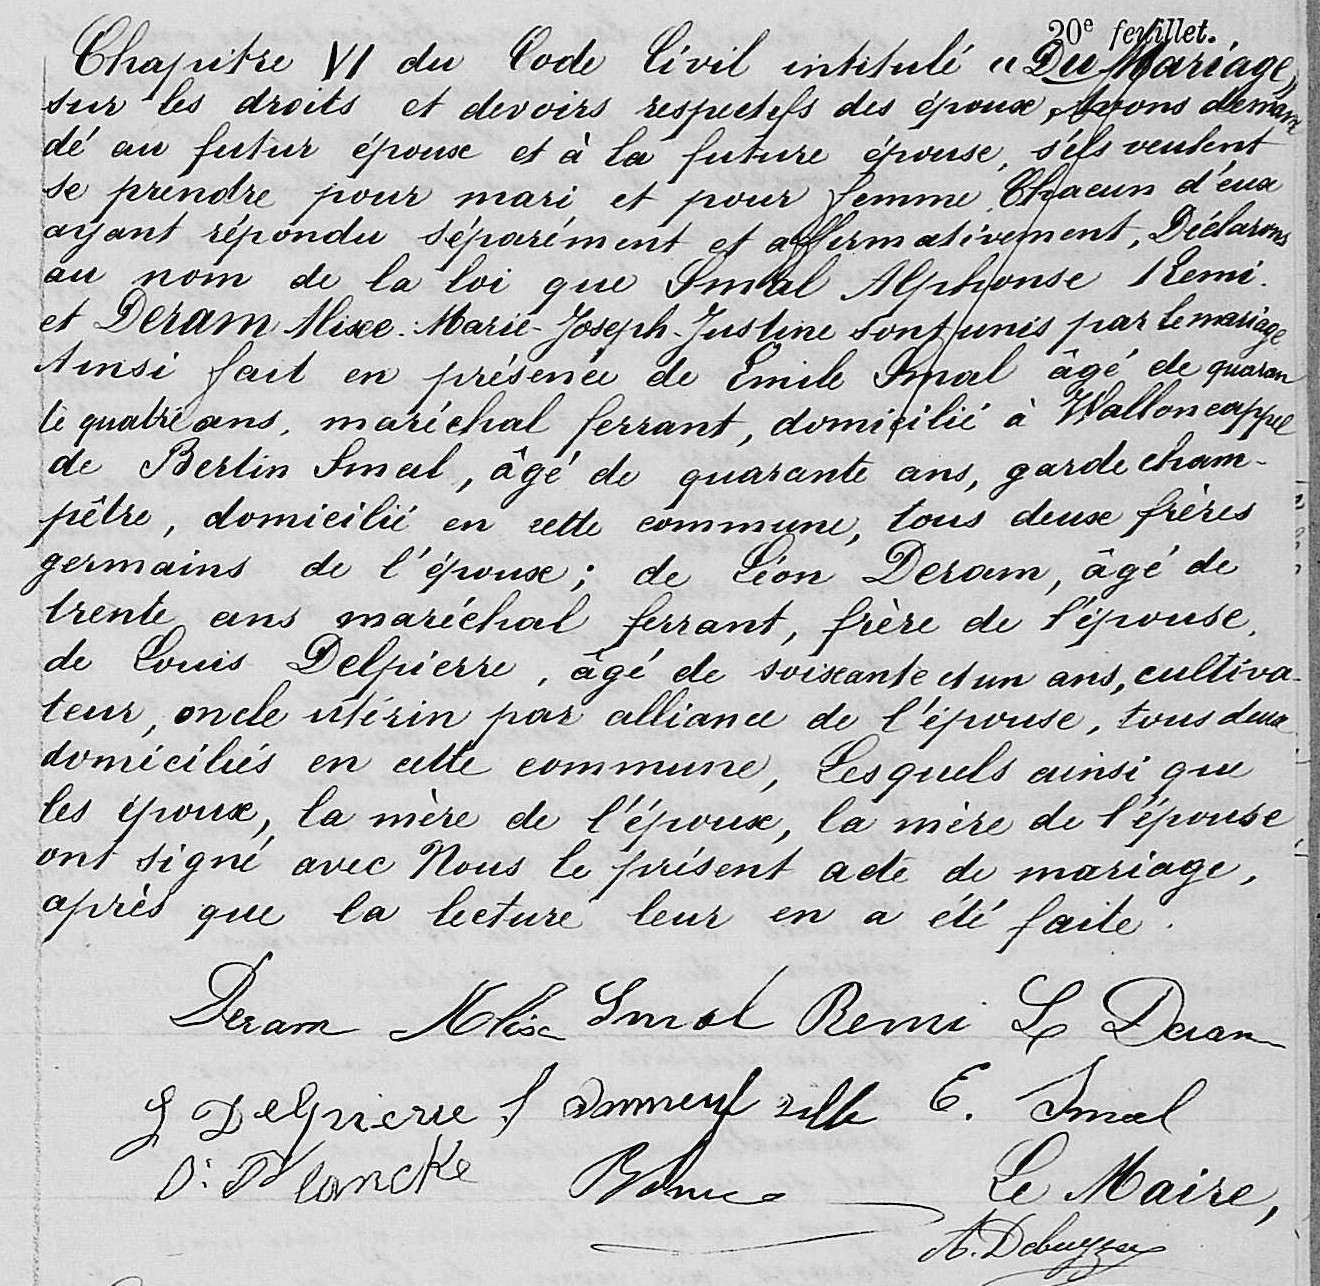 20e feuillet.
Chapitre VI du Code Civil intitulé « Du Mariage »
sur les droits et devoirs respectifs des époux, Avons deman
dé au futur époux et à la future épouse, s'ils veulent
se prendre pour mari et pour femme. Chacun d'eux
ayant répondu séparément et affirmativement, Déclarons
au nom de la loi que Smal Alphonse Remi.
et Deram Alixe. Marie-Joseph-Justine sont unis par le mariage
Ainsi fait en présence de Emile Smal âgé de quaran
te quatre ans, maréchal ferrant, domicilié à Walloncappel
de Bertin Smal, âgé de quarante ans, garde cham-
pêtre, domicilié en cette commune, tous deux frères
germains de l'époux; de Léon Deram, âgé de
trente ans maréchal ferrant, frère de l'épouse,
de Louis Delpierre, âgé de soixante et un ans, cultiva-
teur, oncle utérin par alliance de l'épouse, tous deux
domiciliés en cette commune, Lesquels ainsi que
les époux, la mère de l'époux, la mère de l'épouse
ont signé avec Nous le présent acte de mariage,
après que la lecture leur en a été faite.
Deram Alixe Smal Remi L Deram
L Delpierre E. Smal
Plancke Le Maire,